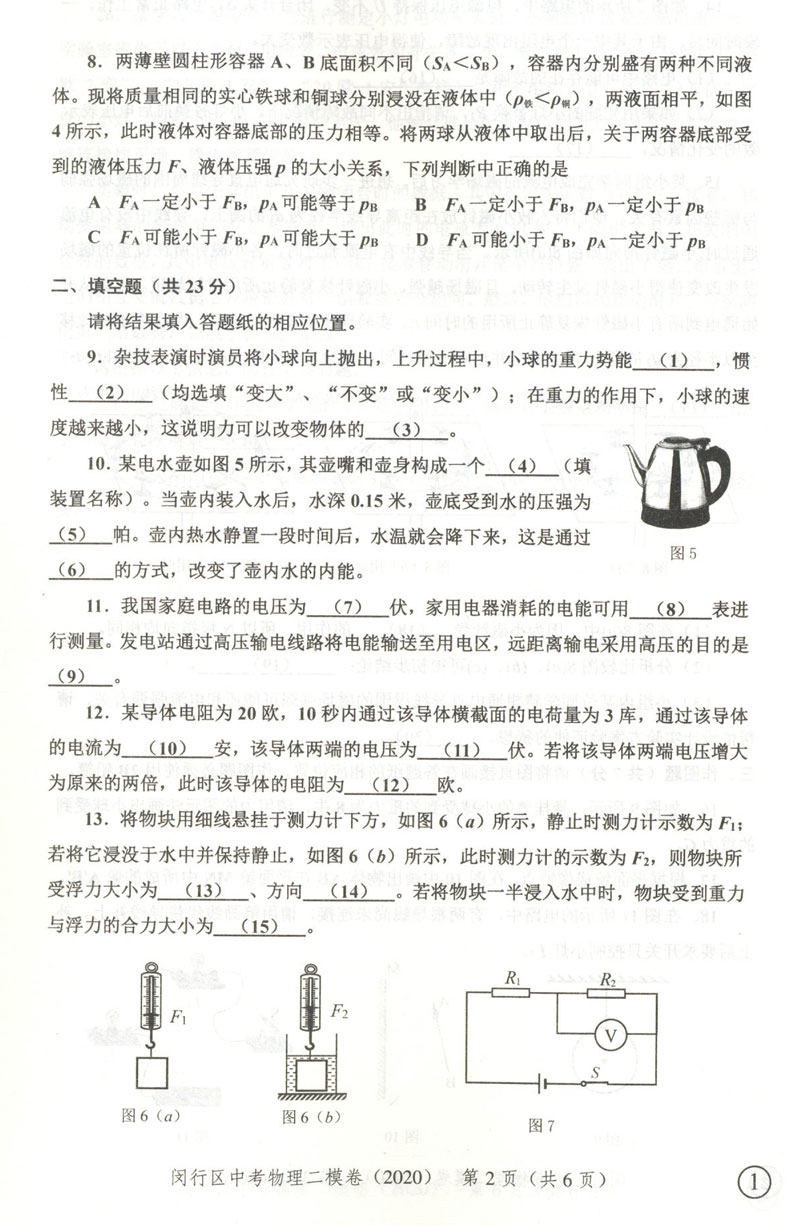 8．两薄壁圆柱形容器 A、B 底面积不同（SA＜SB），容器内分别盛有两种不同液
体。现将质量相同的实心铁球和铜球分别浸没在液体中（ρ铁＜ρ铜），两液面相平，如图
4 所示，此时液体对容器底部的压力相等。将两球从液体中取出后，关于两容器底部受
到的液体压力 F、液体压强 p 的大小关系，下列判断中正确的是
A FA一定小于 FB，pA可能等于 pB B FA一定小于 FB，pA一定小于 pB
C FA可能小于 FB，pA可能大于 pB D FA可能小于 FB，pA一定小于 pB
二、填空题（共 23 分）
请将结果填入答题纸的相应位置。
9．杂技表演时演员将小球向上抛出，上升过程中，小球的重力势能 （1） ，惯
性 （2） （均选填“变大”、“不变”或“变小”）；在重力的作用下，小球的速
度越来越小，这说明力可以改变物体的 （3） 。
10．某电水壶如图 5 所示，其壶嘴和壶身构成一个 （4） （填
装置名称）。当壶内装入水后，水深 0.15 米，壶底受到水的压强为
（5） 帕。壶内热水静置一段时间后，水温就会降下来，这是通过
（6） 的方式，改变了壶内水的内能。
图 5
11．我国家庭电路的电压为 （7） 伏，家用电器消耗的电能可用 （8） 表进
行测量。发电站通过高压输电线路将电能输送至用电区，远距离输电采用高压的目的是
（9） 。
12．某导体电阻为 20 欧，10 秒内通过该导体横截面的电荷量为 3 库，通过该导体
的电流为 （10） 安，该导体两端的电压为 （11） 伏。若将该导体两端电压增大
为原来的两倍，此时该导体的电阻为 （12） 欧。
13．将物块用细线悬挂于测力计下方，如图 6（a）所示，静止时测力计示数为 F1；
若将它浸没于水中并保持静止，如图 6（b）所示，此时测力计的示数为 F2，则物块所
受浮力大小为 （13） 、方向 （14） 。若将物块一半浸入水中时，物块受到重力
与浮力的合力大小为 （15） 。
F1
F2
R1 R2
V
S
图 6（a）
图 6（b）
图 7
闵行区中考物理二模卷（2020） 第 2 页（共 6 页）
1